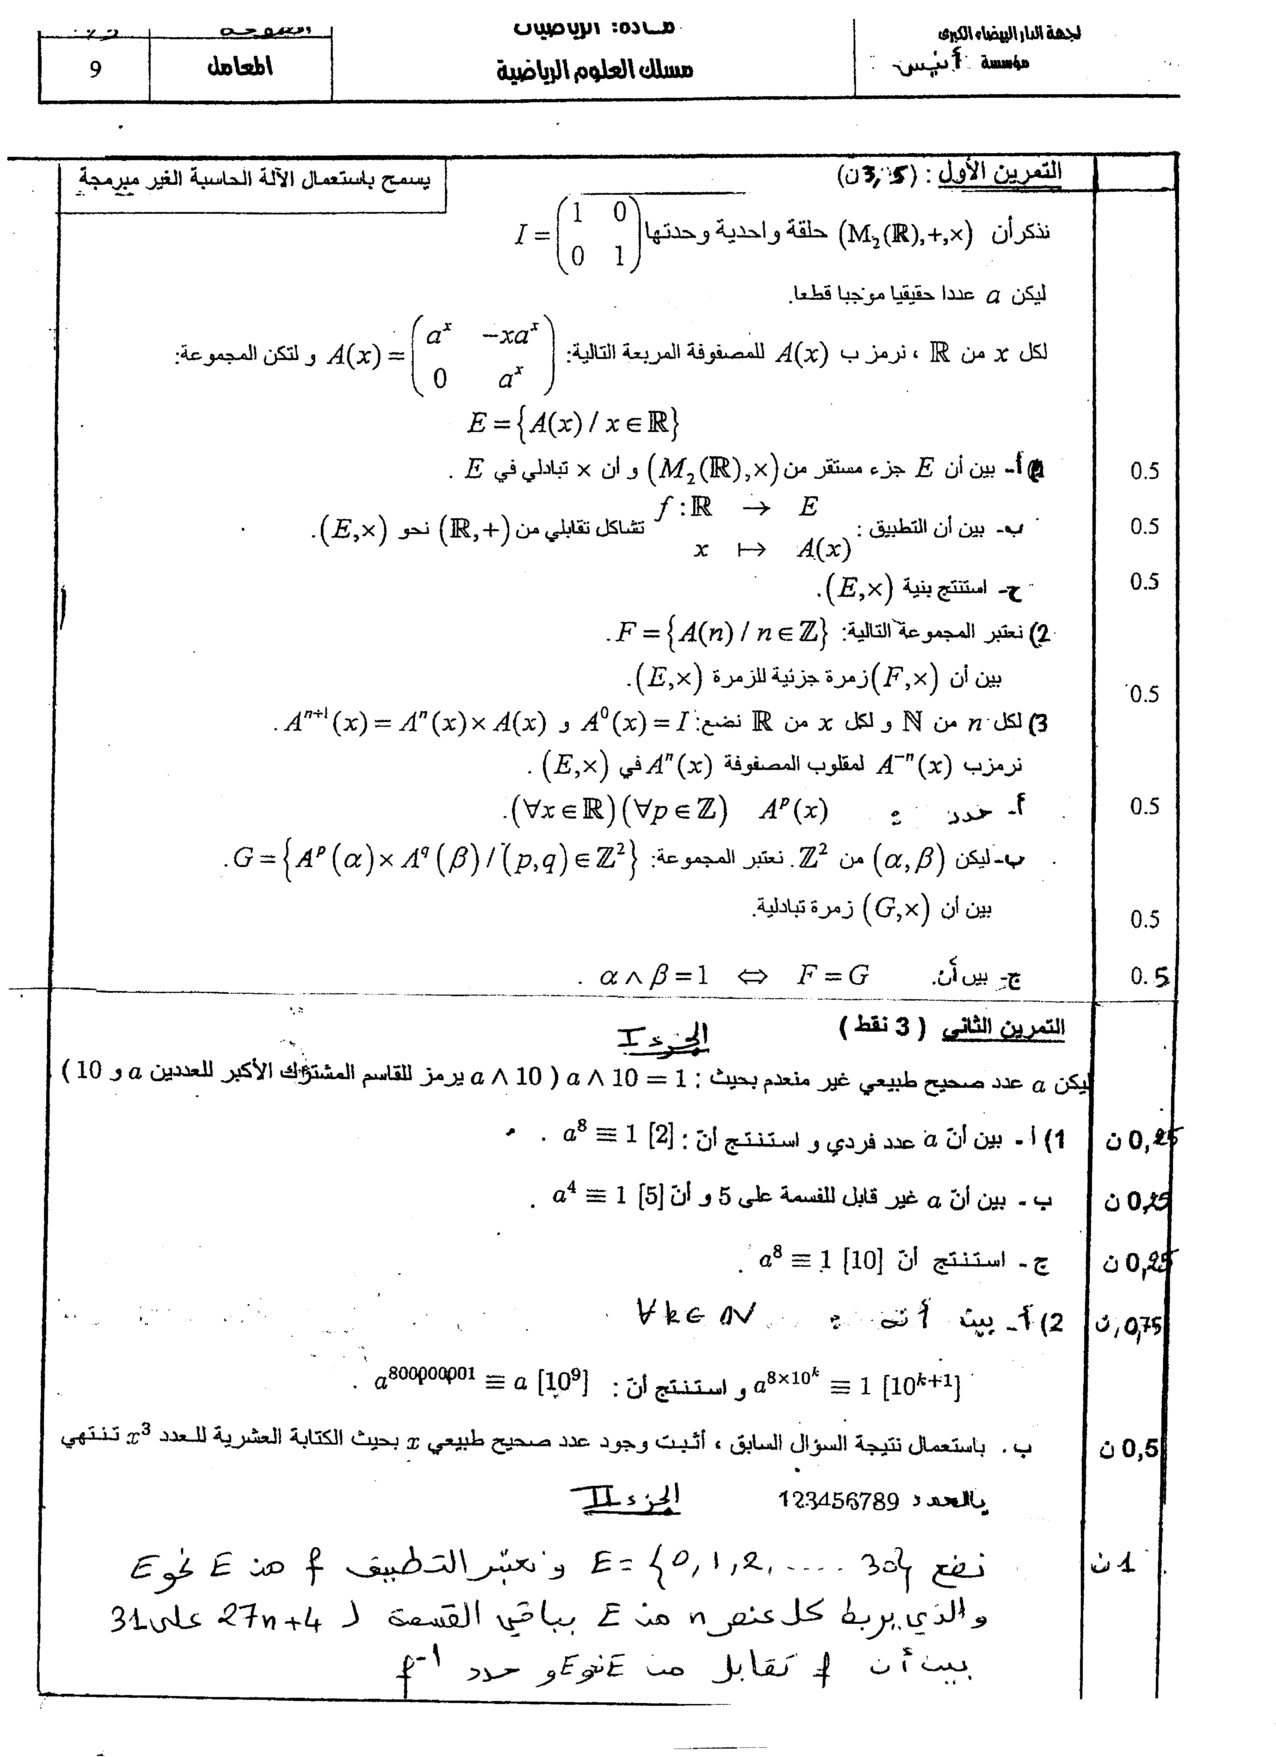 لجهة الدار البيضاء الكبرى
مؤسسة أنيس
مادة: الرياضيات
مسلك العلوم الرياضية
المعامل
9
يسمح باستعمال الآلة الحاسبة الغير مبرمجة
التمرين الأول : (3,5ن)
نذكر أن (M₂(ℝ),+,×) حلقة واحدية وحدتها I = (1 0 ; 0 1)
ليكن a عددا حقيقيا موجبا قطعا.
لكل x من ℝ ، نرمز ب A(x) للمصفوفة المربعة التالية: A(x) = (aˣ −xaˣ ; 0 aˣ) و لتكن المجموعة:
E = {A(x) / x ∈ ℝ}
1) أ- بين أن E جزء مستقر من (M₂(ℝ),×) و أن × تبادلي في E . 0.5
ب- بين أن التطبيق : f : ℝ → E
x ↦ A(x) تشاكل تقابلي من (ℝ,+) نحو (E,×). 0.5
ج- استنتج بنية (E,×). 0.5
2) نعتبر المجموعة التالية: F = {A(n) / n ∈ ℤ} .
بين أن (F,×) زمرة جزئية للزمرة (E,×). 0.5
3) لكل n من ℕ و لكل x من ℝ نضع: A⁰(x) = I و Aⁿ⁺¹(x) = Aⁿ(x) × A(x) .
نرمز ب A⁻ⁿ(x) لمقلوب المصفوفة Aⁿ(x) في (E,×) .
أ- حدد : Aᵖ(x) (∀x ∈ ℝ)(∀p ∈ ℤ). 0.5
ب- ليكن (α,β) من ℤ². نعتبر المجموعة: G = {Aᵖ(α) × A^q(β) / (p,q) ∈ ℤ²} .
بين أن (G,×) زمرة تبادلية. 0.5
ج- بين أن. F = G ⇔ α ∧ β = 1 . 0.5
التمرين الثاني ( 3 نقط )
الجزء I
ليكن a عدد صحيح طبيعي غير منعدم بحيث : a ∧ 10 = 1 (a ∧ 10 يرمز للقاسم المشترك الأكبر للعددين a و 10)
1) أ - بين أنّ a عدد فردي و استنتج أنّ : a⁸ ≡ 1 [2] . 0,25 ن
ب - بين أنّ a غير قابل للقسمة على 5 و أنّ a⁴ ≡ 1 [5] . 0,25 ن
ج - استنتج أنّ a⁸ ≡ 1 [10] . 0,25 ن
2) أ- بين أنه : ∀k ∈ ℕ 0,75 ن
a^(8×10^k) ≡ 1 [10^(k+1)] و استنتج أنّ : a^800000001 ≡ a [10⁹] .
ب . باستعمال نتيجة السؤال السابق ، أثبت وجود عدد صحيح طبيعي x بحيث الكتابة العشرية للعدد x³ تنتهي 0,5 ن
بالعدد 123456789
الجزء II
نضع E = {0,1,2,.... 30} و نعتبر التطبيق f من E نحو E 1 ن
والذي يربط كل عنصر n من E بباقي القسمة ل 27n+4 على 31
بين أن f تقابل من E نحو E و حدد f⁻¹